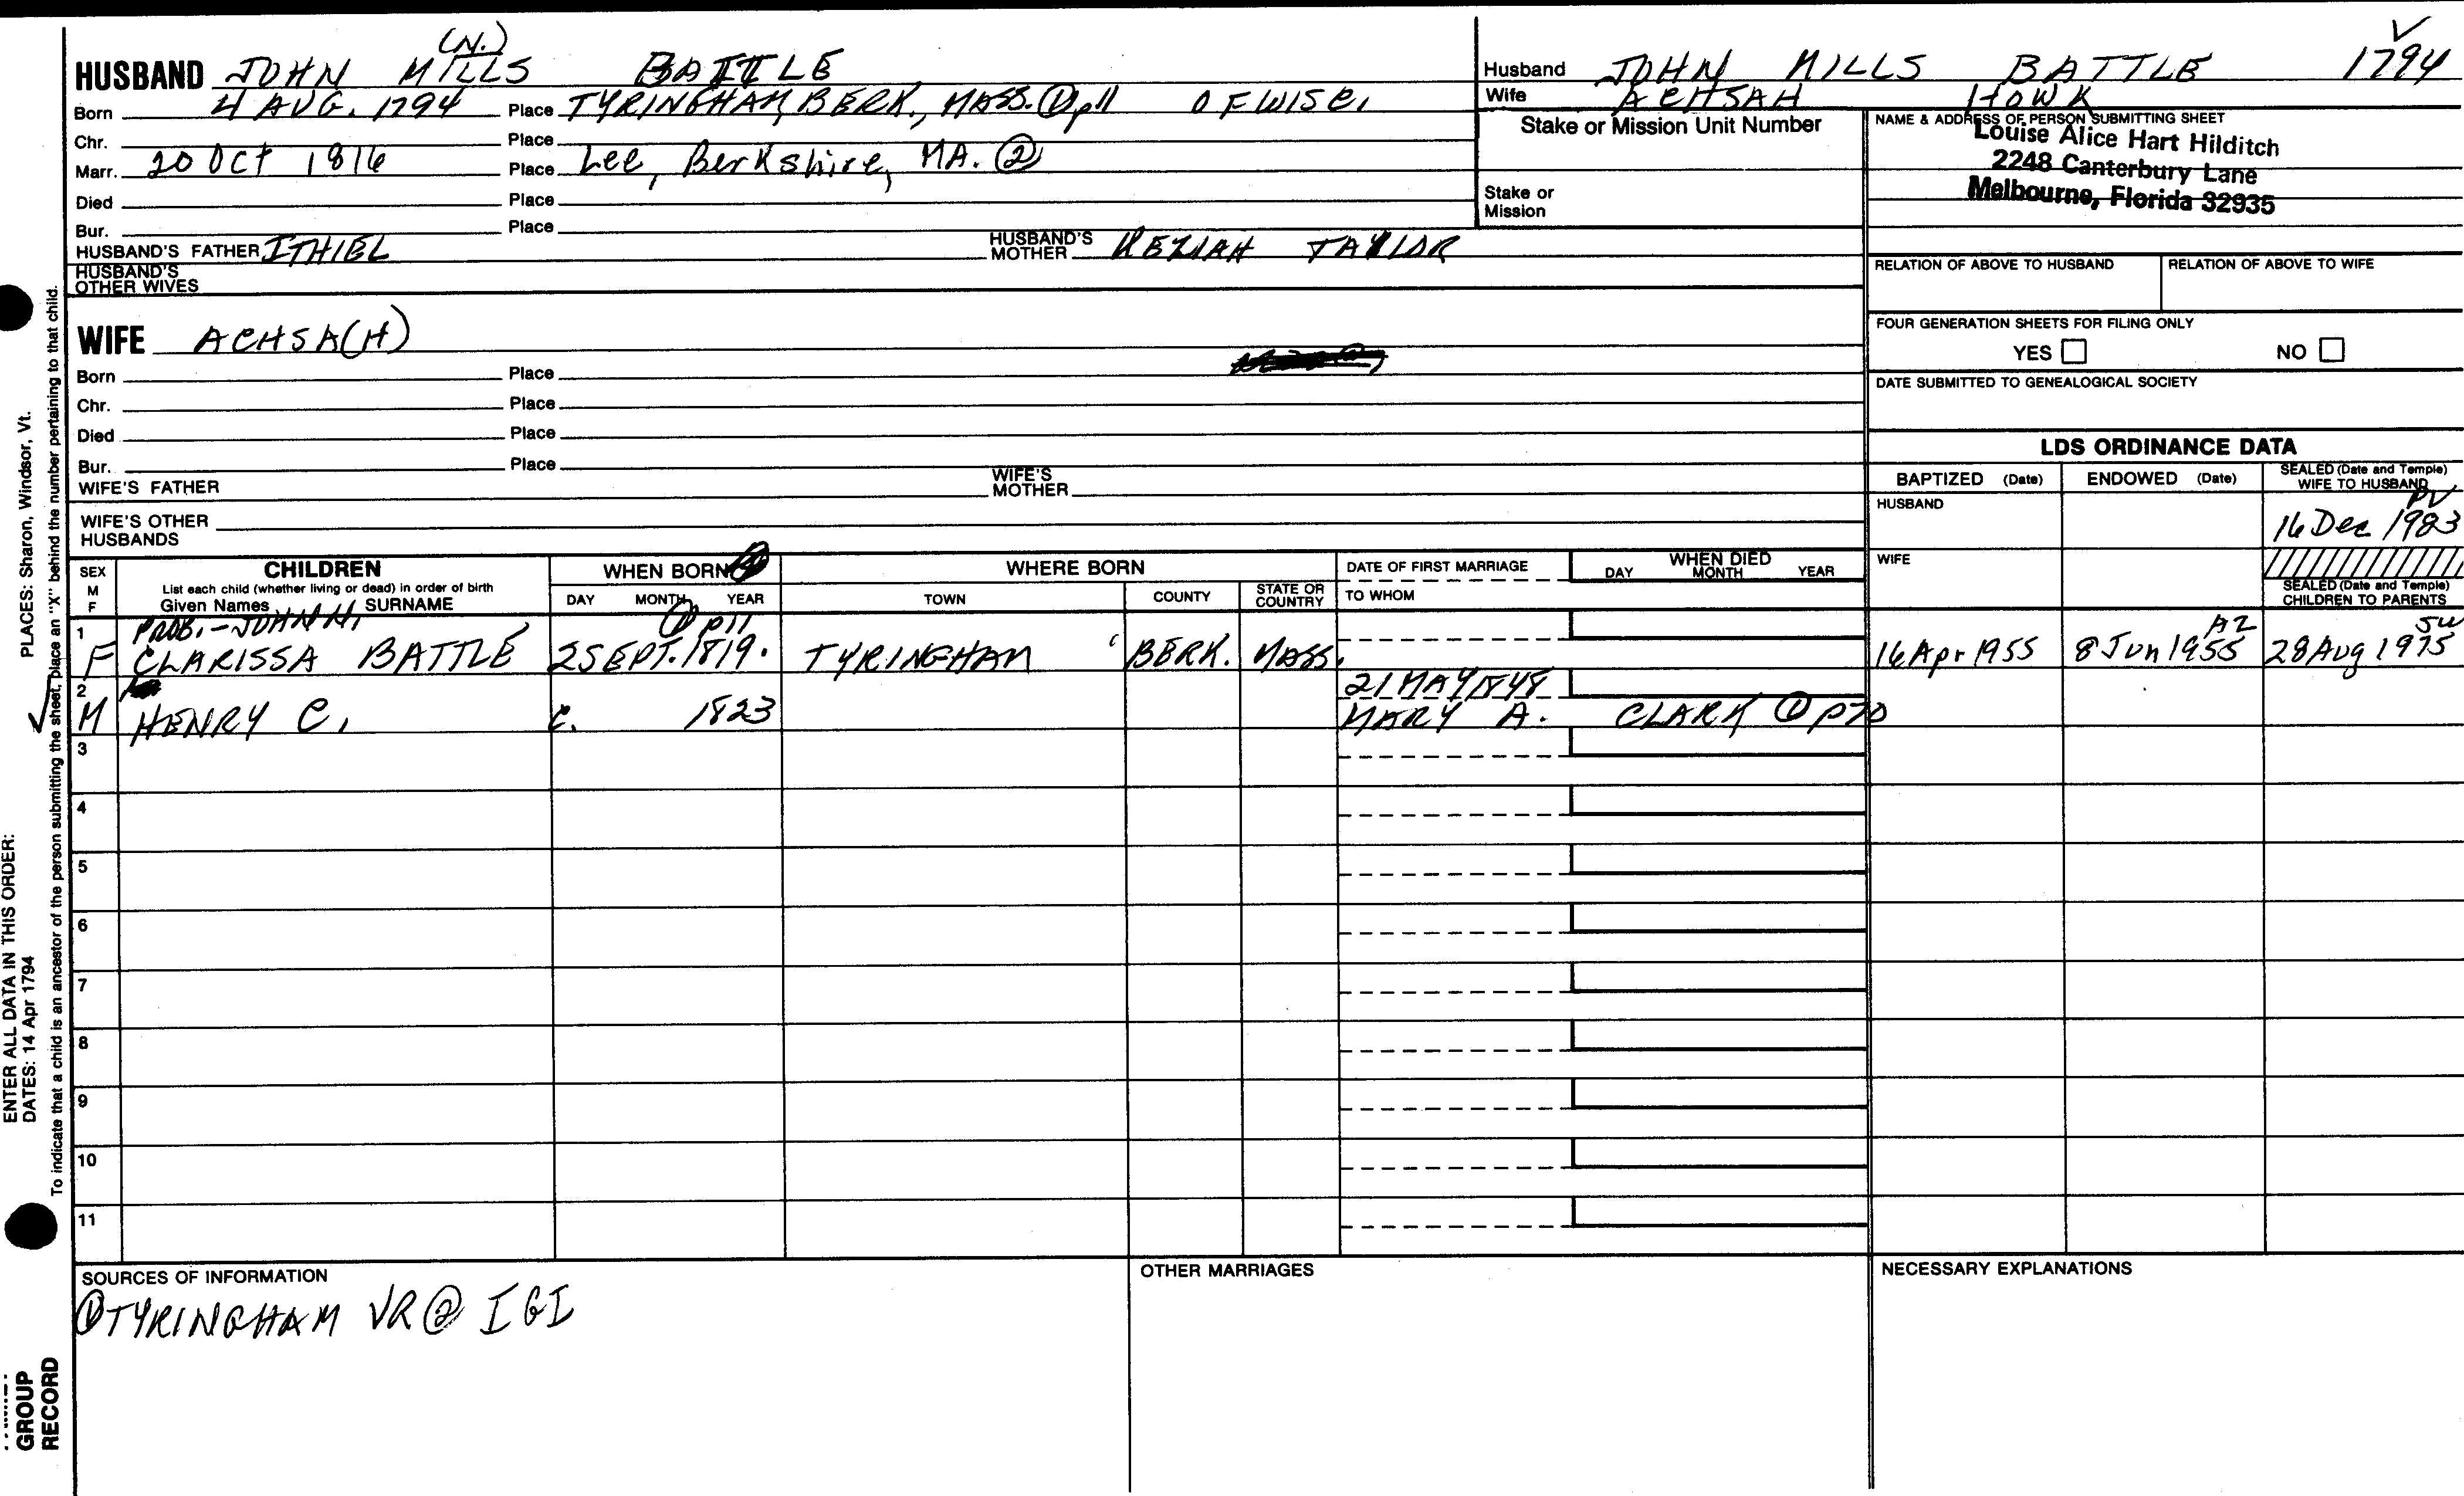 (N.)
HUSBAND JOHN MILLS BATTLE
Born 4 AUG. 1794 Place TYRINGHAM, BERK., MASS. ① p11 OF WISC.
Chr. Place
Marr. 20 Oct 1816 Place Lee, Berkshire, MA. ②
Died Place
Bur. Place
HUSBAND'S FATHER ITHIEL HUSBAND'S MOTHER KEZIAH TAYLOR
HUSBAND'S OTHER WIVES
Husband JOHN MILLS BATTLE 1794
Wife ACHSAH HOWK
Stake or Mission Unit Number
Stake or Mission
NAME & ADDRESS OF PERSON SUBMITTING SHEET
Louise Alice Hart Hilditch
2248 Canterbury Lane
Melbourne, Florida 32935
RELATION OF ABOVE TO HUSBAND RELATION OF ABOVE TO WIFE
FOUR GENERATION SHEETS FOR FILING ONLY
YES NO
DATE SUBMITTED TO GENEALOGICAL SOCIETY
WIFE ACHSA(H)
Born Place
Chr. Place
Died Place
Bur. Place
WIFE'S FATHER WIFE'S MOTHER
WIFE'S OTHER HUSBANDS
LDS ORDINANCE DATA
BAPTIZED (Date) ENDOWED (Date) SEALED (Date and Temple) WIFE TO HUSBAND
HUSBAND PV
16 Dec 1983
WIFE
SEALED (Date and Temple) CHILDREN TO PARENTS
SEX M F
CHILDREN
List each child (whether living or dead) in order of birth
Given Names SURNAME
WHEN BORN
DAY MONTH YEAR
WHERE BORN
TOWN COUNTY STATE OR COUNTRY
DATE OF FIRST MARRIAGE
TO WHOM
WHEN DIED
DAY MONTH YEAR
1 PROB.-JOHN N. ① p11 AZ SW
F CLARISSA BATTLE 2 SEPT. 1819. TYRINGHAM BERK. MASS. 16 Apr 1955 8 Jun 1955 28 Aug 1975
2 21 MAY 1848
M HENRY C. C. 1823 MARY A. CLARK ① p70
3
4
5
6
7
8
9
10
11
SOURCES OF INFORMATION
① TYRINGHAM VR ② IGI
OTHER MARRIAGES
NECESSARY EXPLANATIONS
PLACES: Sharon, Windsor, Vt.
To indicate that a child is an ancestor of the person submitting the sheet, place an "X" behind the number pertaining to that child.
ENTER ALL DATA IN THIS ORDER:
DATES: 14 Apr 1794
GROUP
RECORD